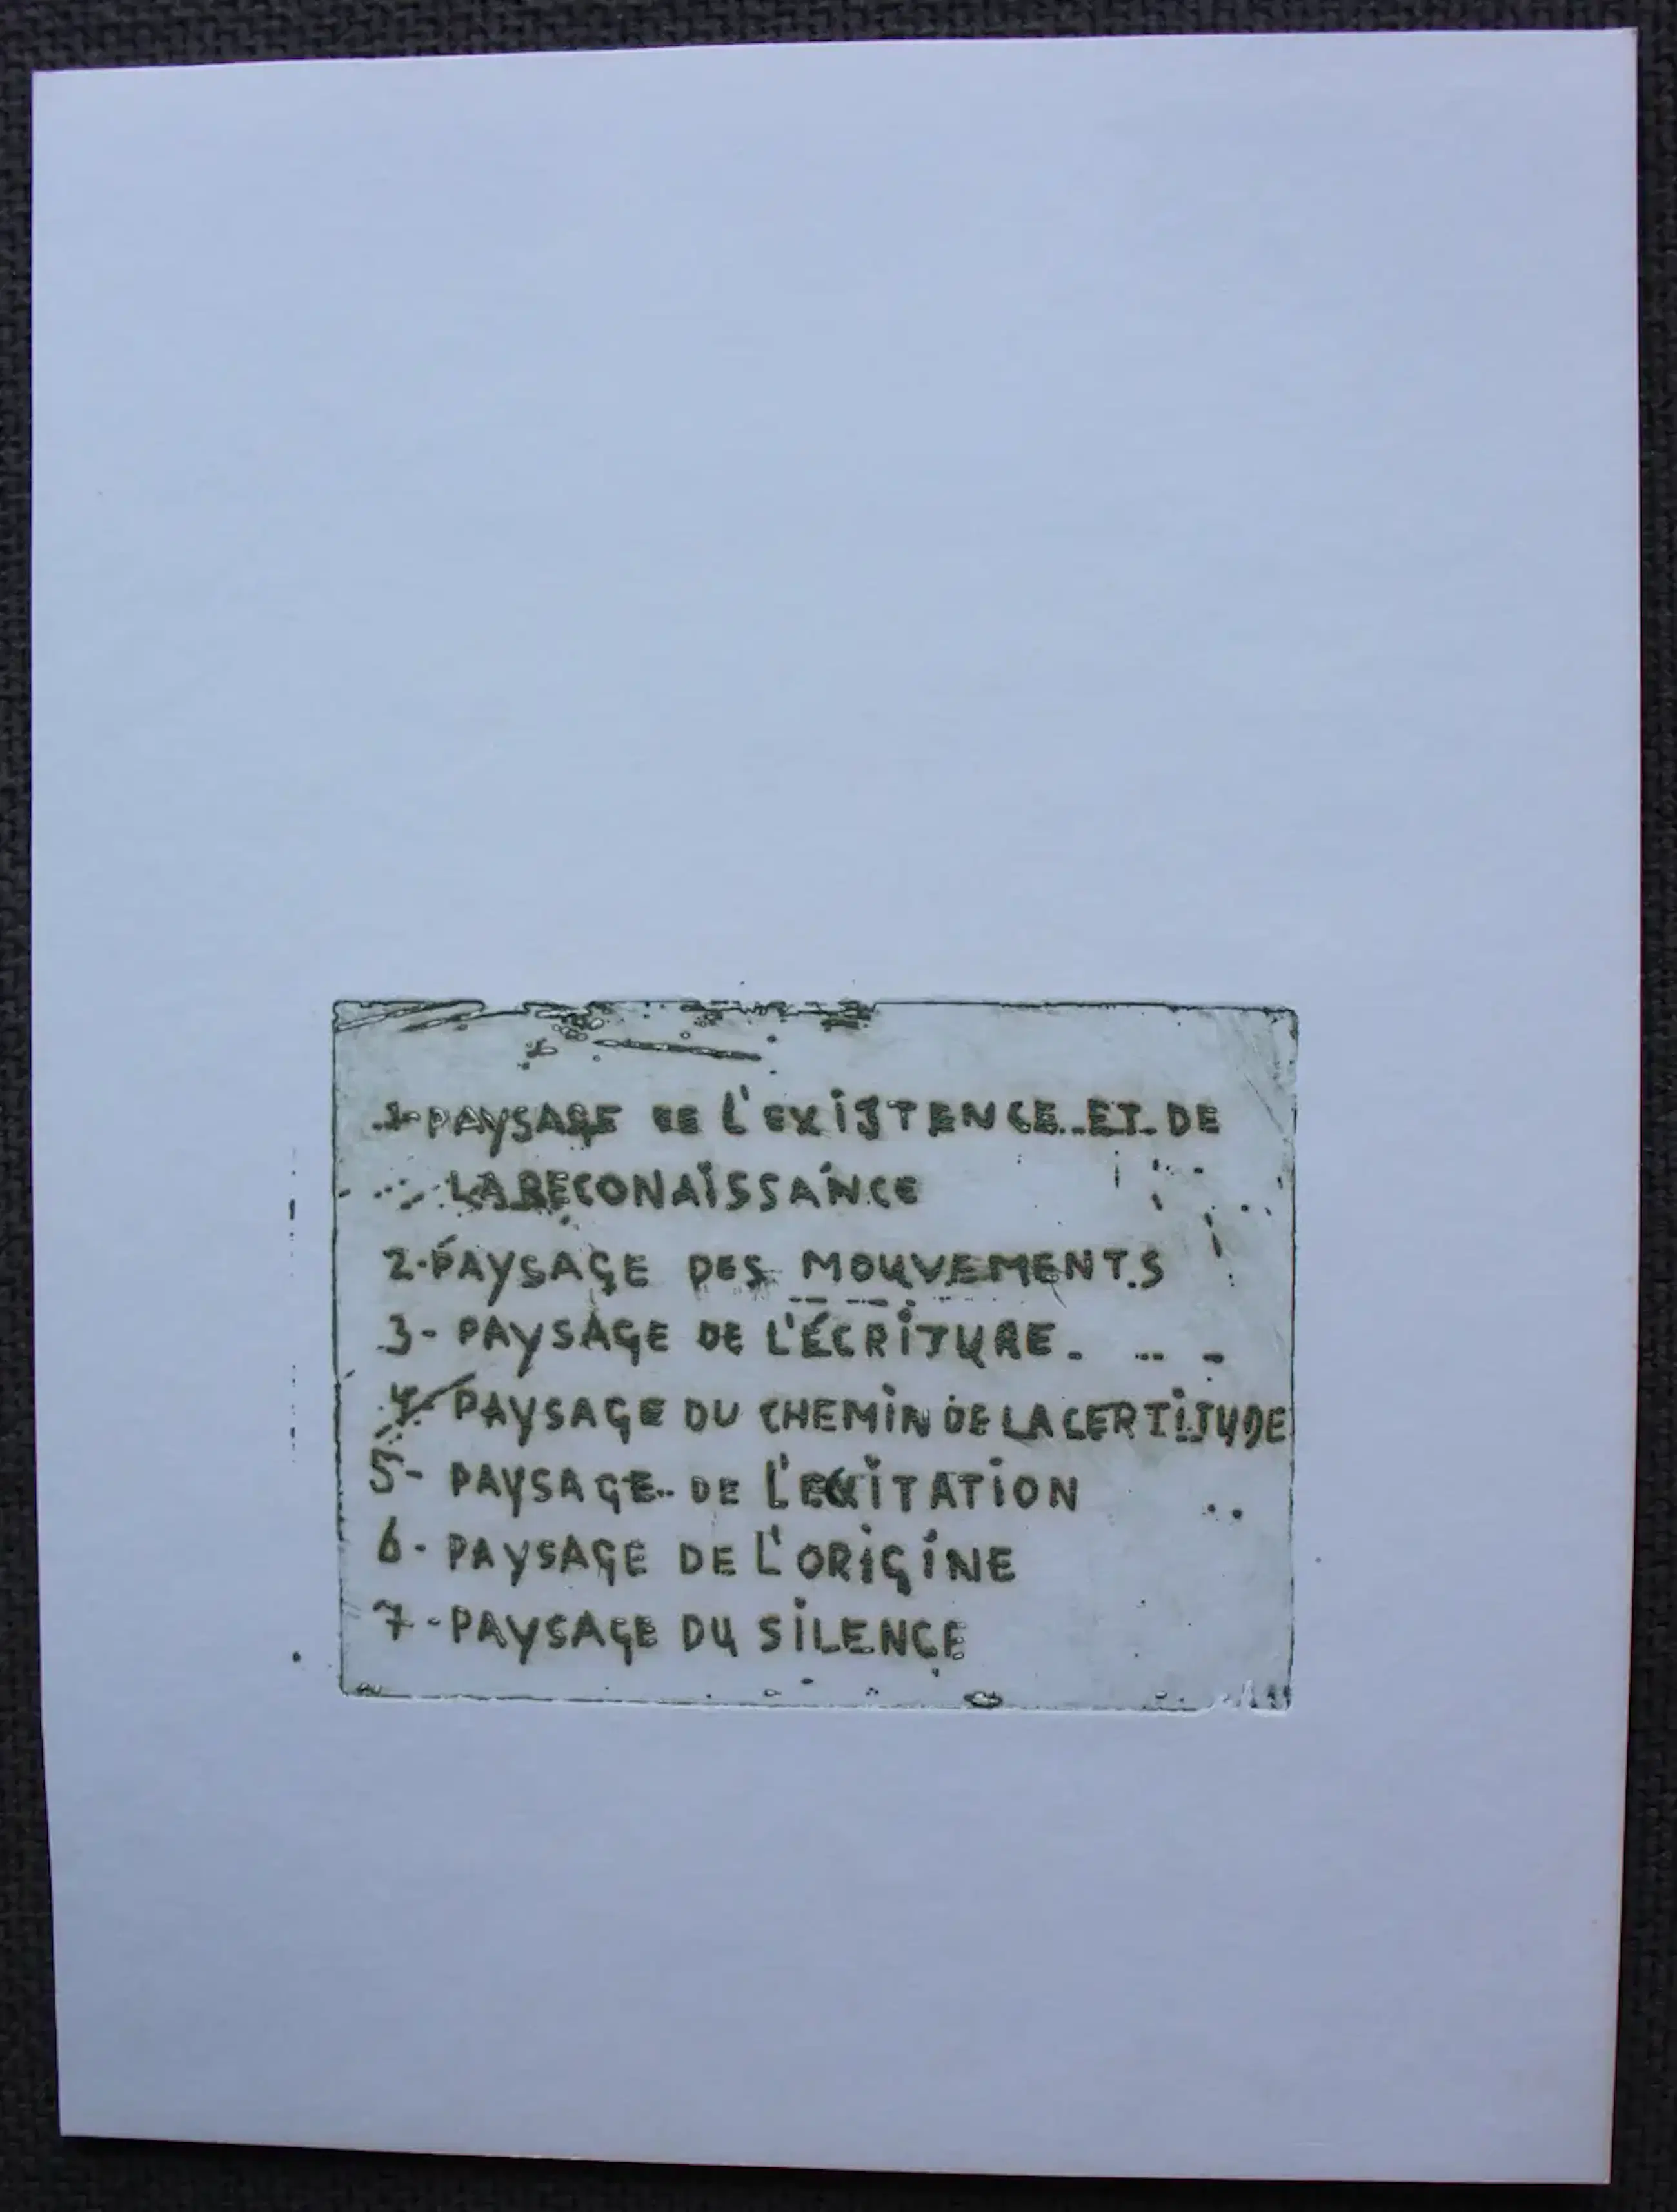 1-PAYSAGE DE L'EXISTENCE ET DE
LA RECONAISSANCE
2-PAYSAGE DES MOUVEMENTS
3- PAYSAGE DE L'ÉCRITURE.
4- PAYSAGE DU CHEMIN DE LA CERTITUDE
5- PAYSAGE DE
6- PAYSAGE DE L'ORIGINE
7-PAYSAGE DU SILENCE